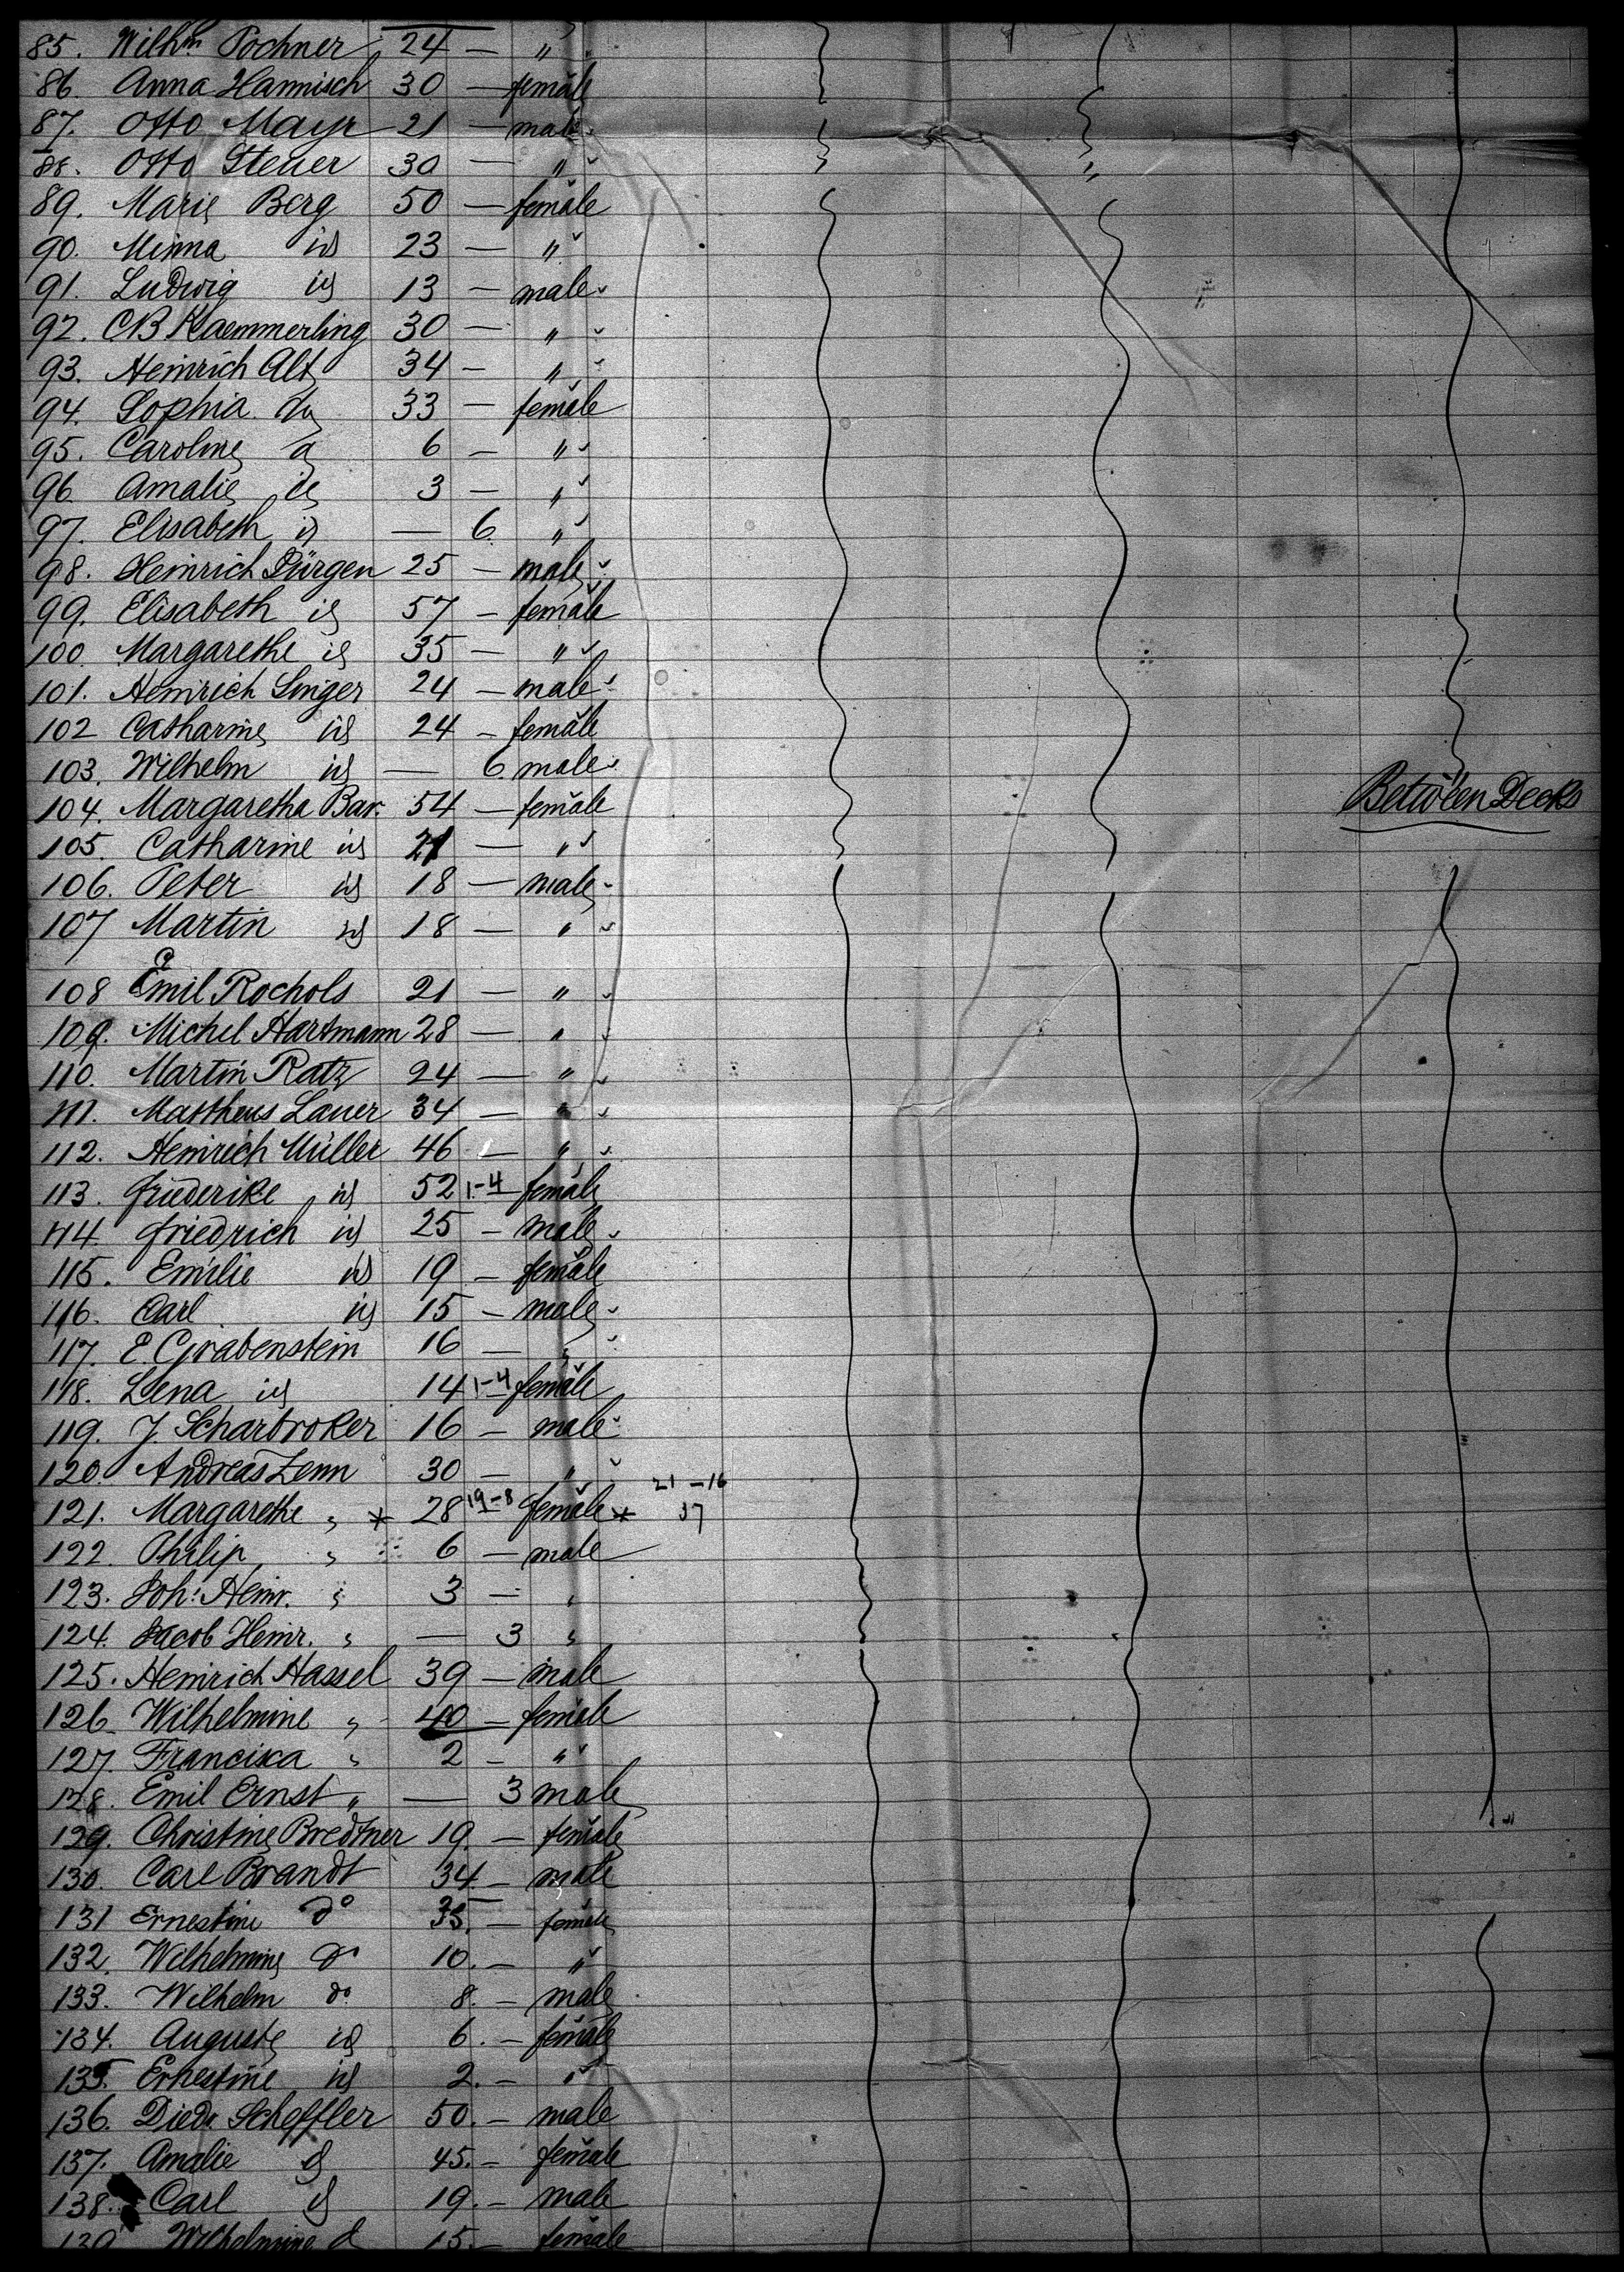 85. Wilhm Pochner 24 — "
86. Anna Hannisch 30 — female
87. Otto Mayr 21 — male
88. Otto Steuer 30 — "
89. Marie Berg 50 — female
90. Minna id 23 — "
91. Ludwig id 13 — male
92. CB Kaemmerling 30 — "
93. Heinrich Alt 34 — "
94. Sophia do 33 — female
95. Caroline 6 — "
96. Amalie id 3 — "
97. Elisabeth id — 6. "
98. Heinrich Jürgen 25 — male
99. Elisabeth id 57 — female
100. Margarethe id 35 — "
101. Heinrich Singer 24 — male
102 Catharine id 24 — female
103. Wilhelm id — 6. male
104. Margaretha Bar. 54 — female
Between Decks
105. Catharine id 21 — "
106. Peter id 18 — male
107 Martin id 18 — "
108 Emil Rochols 21 — "
109. Michel Hartmann 28 — "
110. Martin Ratz 24 — "
111. Mattheus Lauer 34 — "
112. Heinrich Müller 46 — "
113. Friederike id 52 1-4 female
114. Friedrich id 25 — male
115. Emilie id 19 — female
116. Carl id 15 — male
117. E. Grabenstein 16 — "
118. Lena id 14 1-4 female
119. J. Scharbroker 16 — male
120. Andreas Zenn 30 — "
21-16
121. Margarethe " * 28 19-8 female * 37
122. Philip " 6 — male
123. Joh: Heinr. " 3 — "
124. Jacob Heinr. " — 3 "
125. Heinrich Hassel 39 — male
126. Wilhelmine " 40 — female
127. Francisca " 2 — "
128. Emil Ernst " — 3 male
129. Christine Bredtner 19. — female
130. Carl Brandt 34 — male
131 Ernestine do 35. — female
132. Wilhelmine do 10. — "
133. Wilhelm do 8. — male
134. Auguste id 6. — female
135. Ernestine id 2. — "
136. Diedr Scheffler 50. — male
137. Amalie id 45. — female
138. Carl id 19. — male
139 Wilhelmine d 15. — female